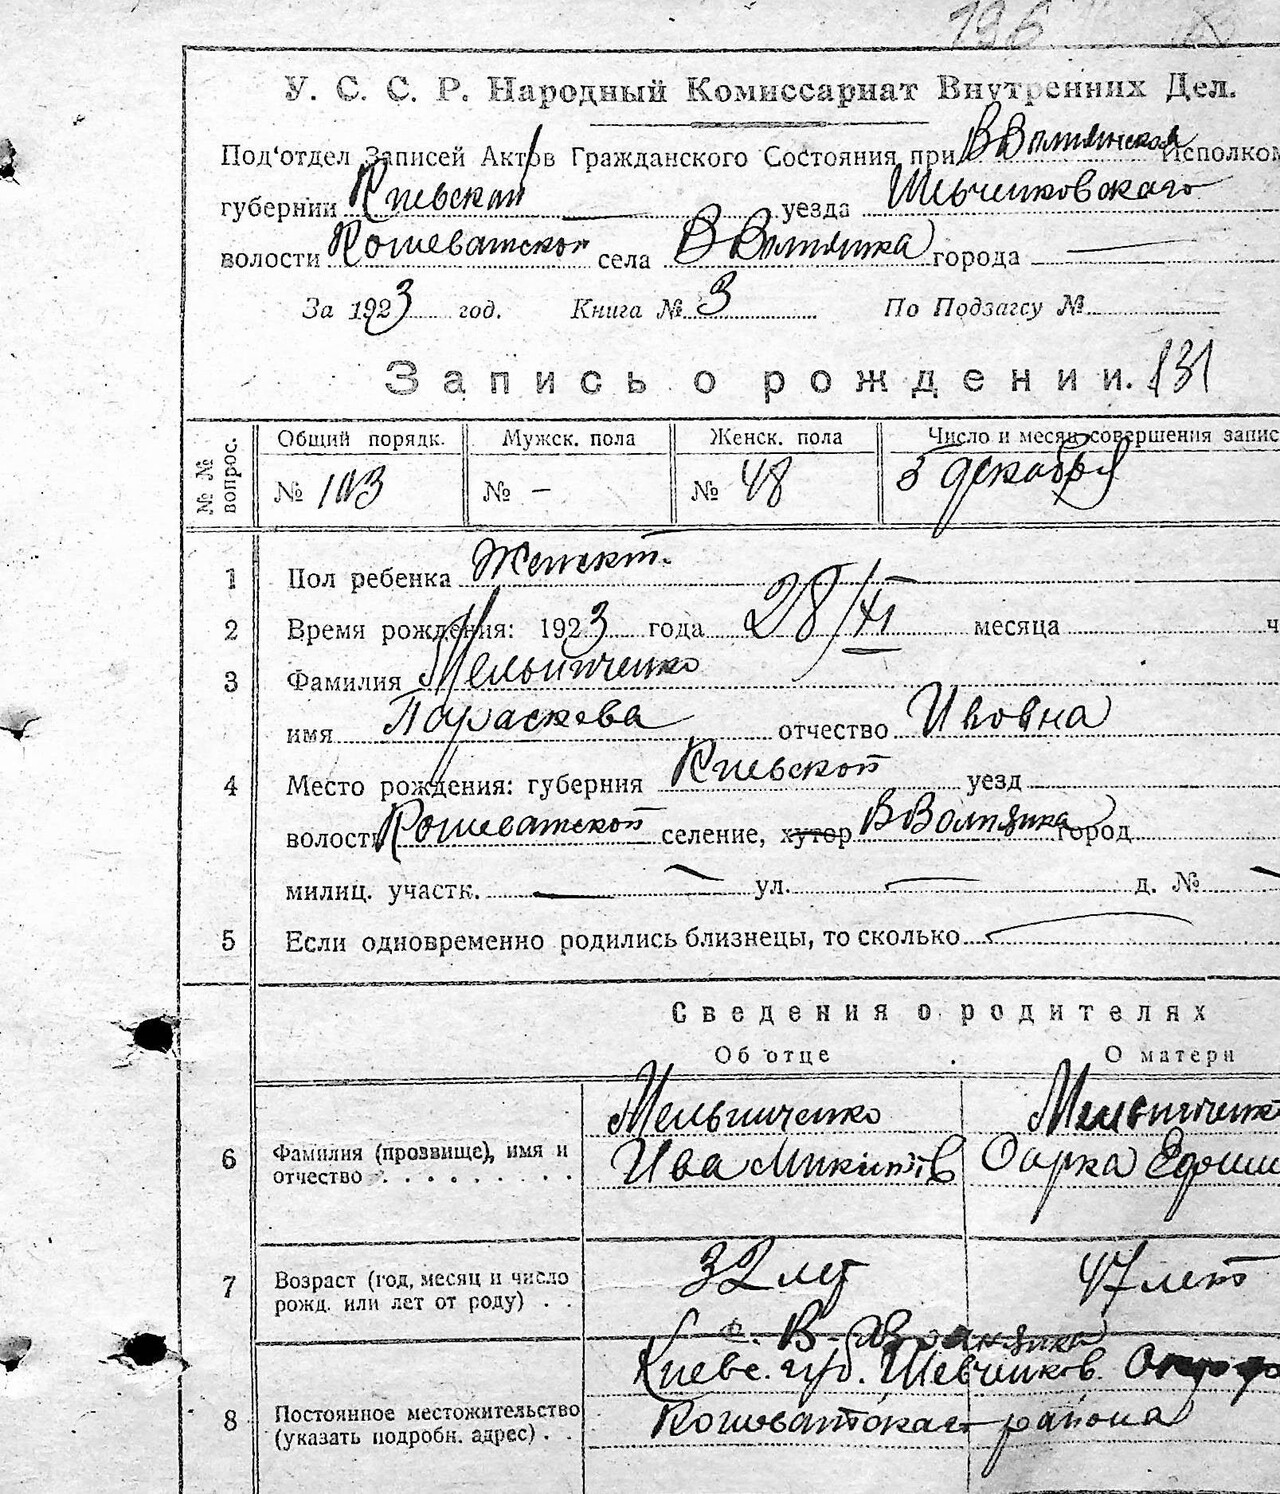 196
У. С. С. Р. Народный Комиссариат Внутренних Дел.
Под'отдел Записей Актов Гражданского Состояния при Исполком
губернии Киевской уезда Шевченковского
волости Кошеватской села города —
За 1923 год. Книга № 3 По Подзагсу №
Запись о рождении. 131
№ № вопрос. Общий порядк. Мужск. пола Женск. пола Число и месяц совершения запис
№ 103 № — № 48 5 декабря
1 Пол ребенка Женск.
2 Время рождения: 1923 года 28/XI месяца ч
3 Фамилия Мельниченко
имя Параскева отчество Ивовна
4 Место рождения: губерния Киевской уезд
волости Кошеватской селение, хутор город
милиц. участк. — ул. — д. №
5 Если одновременно родились близнецы, то сколько —
Сведения о родителях
Об отце О матери
Мельниченко Мельниченк
6 Фамилия (прозвище), имя и Ива Микитів Одарка
отчество . . . . . . . . .
7 Возраст (год, месяц и число 32 лет 47 лет
рожд. или лет от роду) . .
с. В-
Киевс. губ. Шевченков.
8 Постоянное местожительство района
(указать подробн. адрес) . .